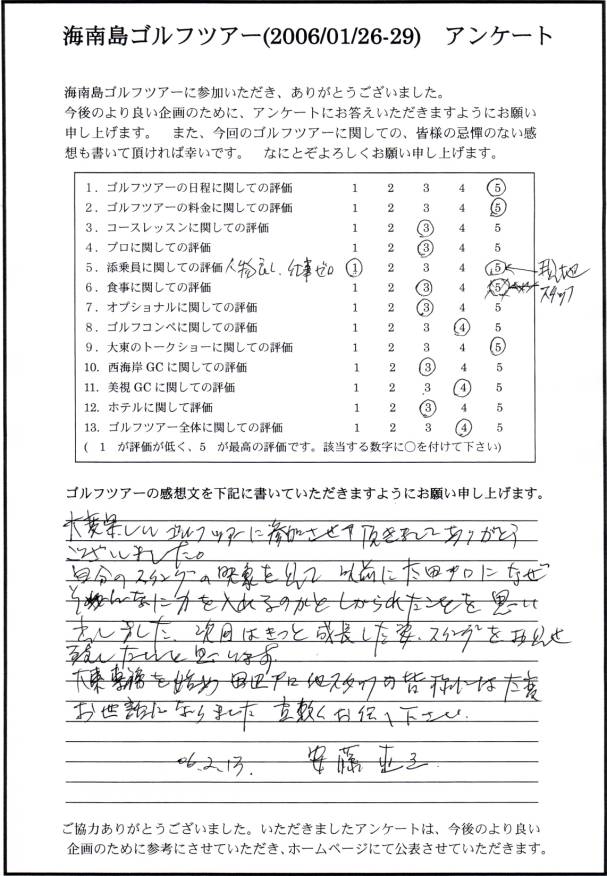 海南島ゴルフツアー(2006/01/26-29)　アンケート
海南島ゴルフツアーに参加いただき、ありがとうございました。
今後のより良い企画のために、アンケートにお答えいただきますようにお願い
申し上げます。　また、今回のゴルフツアーに関しての、皆様の忌憚のない感
想も書いて頂ければ幸いです。　なにとぞよろしくお願い申し上げます。
1. ゴルフツアーの日程に関しての評価 1 2 3 4 5
2. ゴルフツアーの料金に関しての評価 1 2 3 4 5
3. コースレッスンに関しての評価 1 2 3 4 5
4. プロに関しての評価 1 2 3 4 5
5. 添乗員に関しての評価 人物良し、仕事ゼロ 1 2 3 4 5 ← 現地
6. 食事に関しての評価 1 2 3 4 5 スタッフ
7. オプショナルに関しての評価 1 2 3 4 5
8. ゴルフコンペに関しての評価 1 2 3 4 5
9. 大東のトークショーに関しての評価 1 2 3 4 5
10. 西海岸 GC に関しての評価 1 2 3 4 5
11. 美視 GC に関しての評価 1 2 3 4 5
12. ホテルに関して評価 1 2 3 4 5
13. ゴルフツアー全体に関しての評価 1 2 3 4 5
(　1　が評価が低く、5　が最高の評価です。該当する数字に〇を付けて下さい)
ゴルフツアーの感想文を下記に書いていただきますようにお願い申し上げます。
大変楽しいゴルフツアーに参加させて頂きましてありがとう
ございました。
自分のスイングの映象を見て 以前に太田プロになぜ
そんなに力を入れるのかとしかられたことを思い
出しました、次回はきっと成長した姿、スイングをお見せ
致したいと思います。
大東専務を始め 田辺プロ他スタッフの皆様には大変
お世話になりました 宜敷くお伝え下さい。
06.2,13. 安藤
ご協力ありがとうございました。いただきましたアンケートは、今後のより良い
企画のために参考にさせていただき、ホームページにて公表させていただきます。